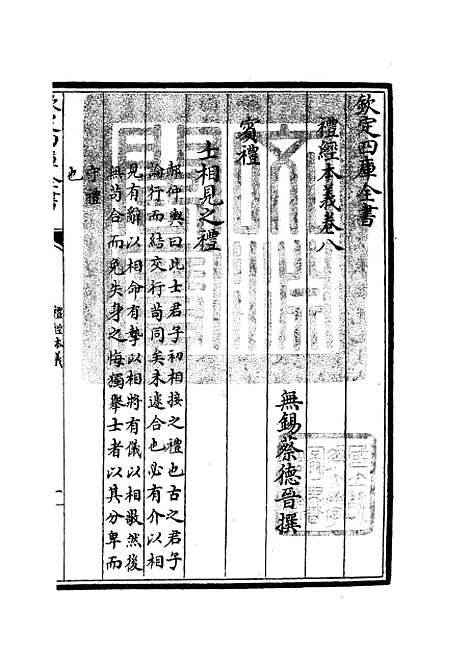 欽定四庫全書
禮經本義卷八
無錫蔡德晉撰
賓禮
士相見之禮
郝仲輿曰此士君子初相接之禮也古之君子
論行而結交行苟同矣未遽合也必有介以相
見有辭以相命有摯以相將有儀以相敬然後
無苟合而免失身之悔獨舉士者以其分卑而
守禮
也
欽定四庫全書
禮經本義
一